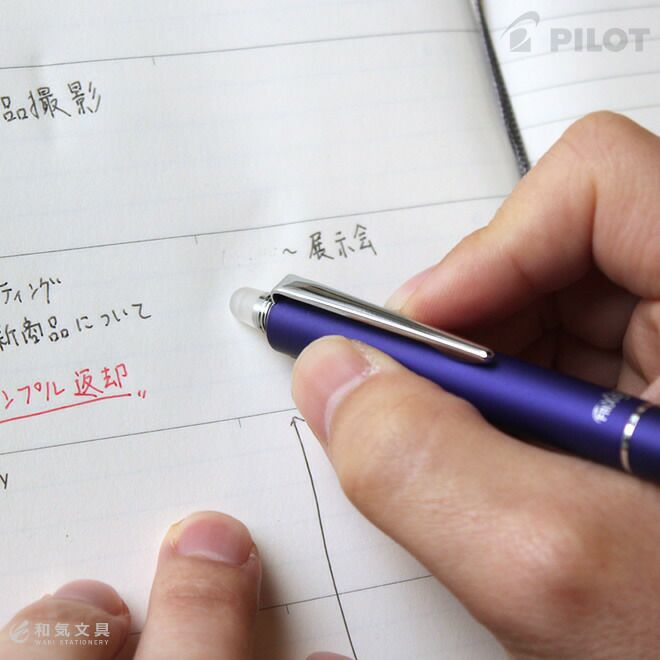 PILOT
品撮影
～展示会
ティング
新商品について
ンプル返却〃
y
和気文具
WAKI STATIONERY